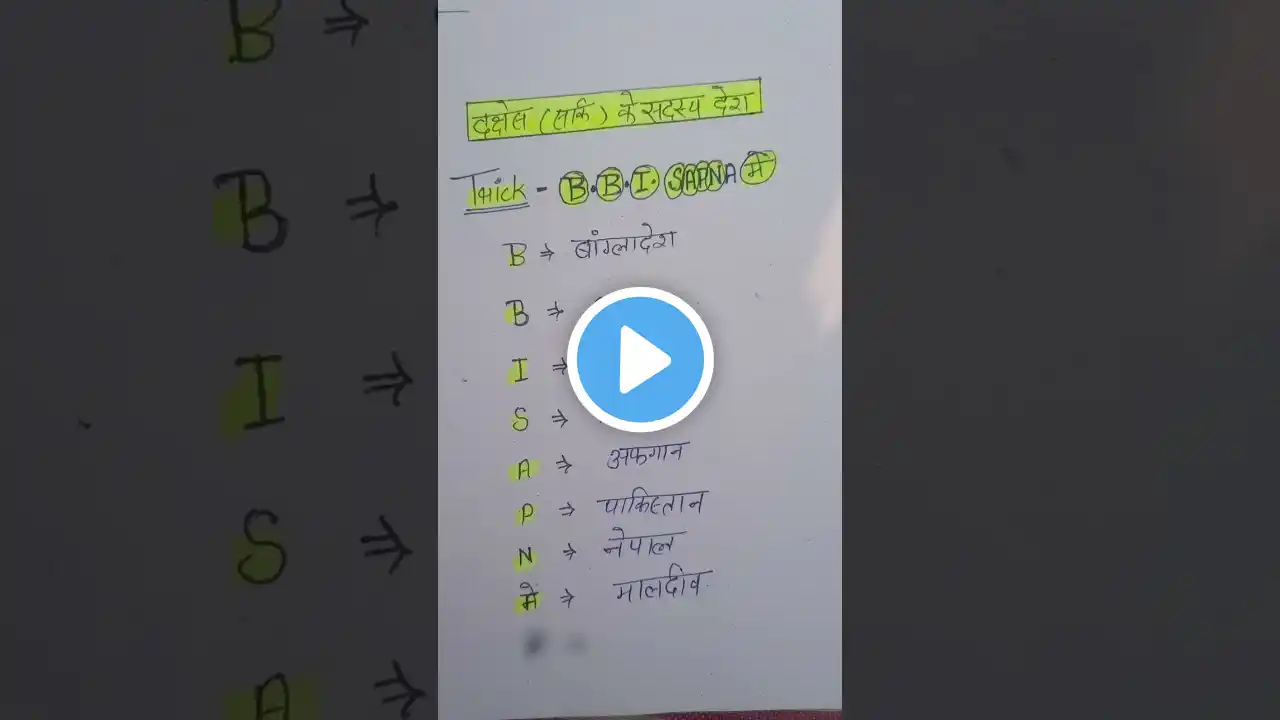 दक्षेस (सार्क) के सदस्य देश
Trick - B.B.I. SAPNA में
B ⇒ बांग्लादेश
B ⇒
I ⇒
S ⇒
A ⇒ अफगान
P ⇒ पाकिस्तान
N ⇒ नेपाल
में ⇒ मालदीव